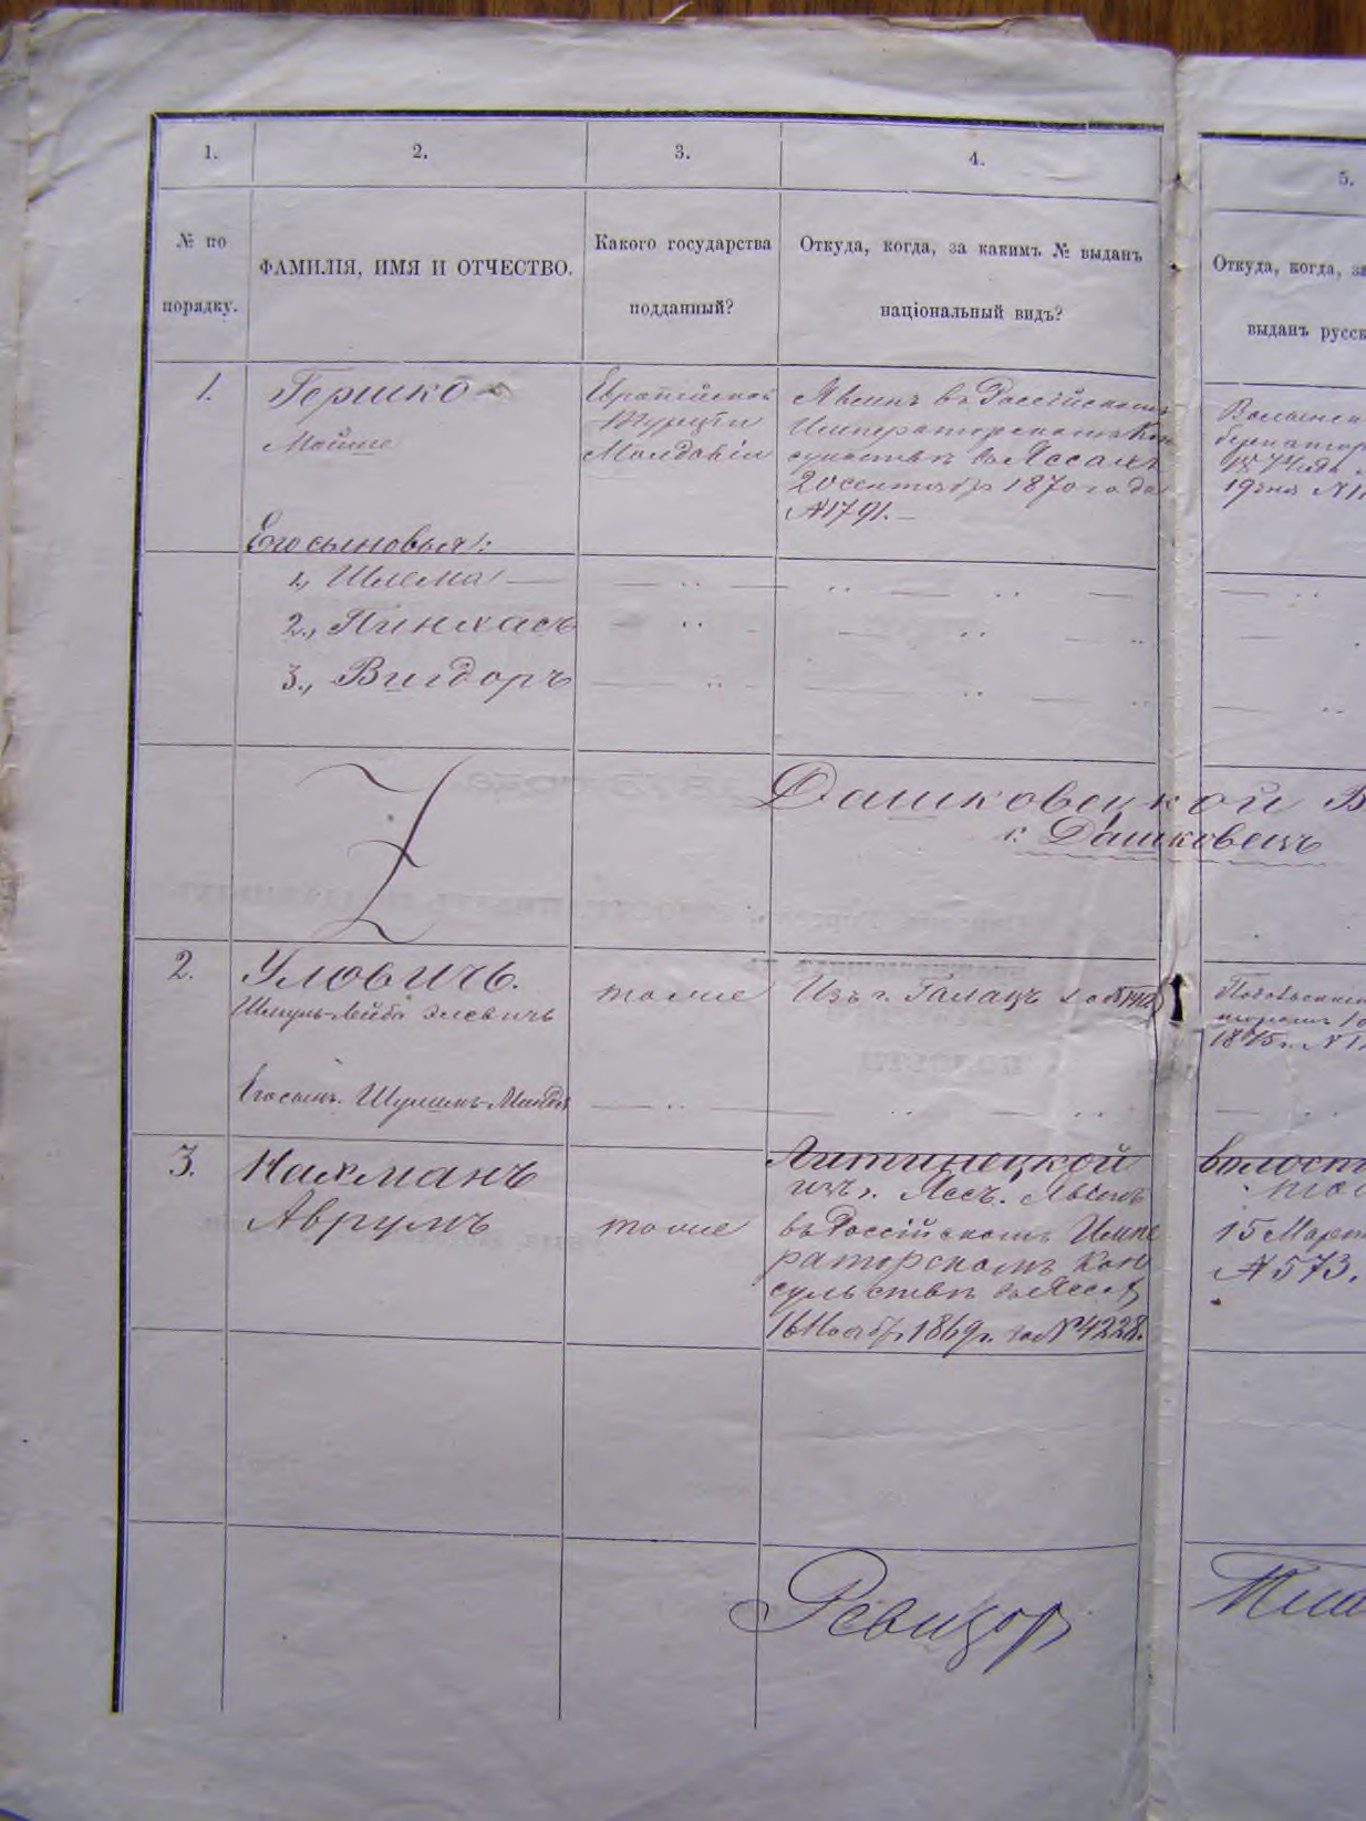 1.
2.
3.
4.
5.
№ по
порядку.
ФАМИЛІЯ, ИМЯ И ОТЧЕСТВО.
Какого государства
подданный?
Откуда, когда, за какимъ № выданъ
національный видъ?
Откуда, когда, за
выданъ русск
1.
Гершко
Мойше
Европейской
Турціи
Молдавіи
Явленъ въ Россійскомъ
Императорскомъ Кон
сульствѣ въ Яссахъ
20 сентября 1870 года
№ 1791.
Волынск
1874 года
19 № 11
Его сыновья:
1., Шлема
2., Пинхасъ
3., Вигдоръ
Дашковецкой В
с. Дашковецъ
2.
Уловичъ.
Шмуль-Лейба Элевичъ
тоже
Изъ г. Галацъ
1875 г. № 1
Его сынъ. Шулимъ-Мандл
3.
Нахманъ
Аврумъ
тоже
Литинецкой волост
изъ г. Яссъ. Явленъ
въ Россійскомъ Импе
раторскомъ Кон
сульствѣ въ Яссах
16 Ноября 1869 г. за № 4228.
15 Март
№ 573.
Ревизор